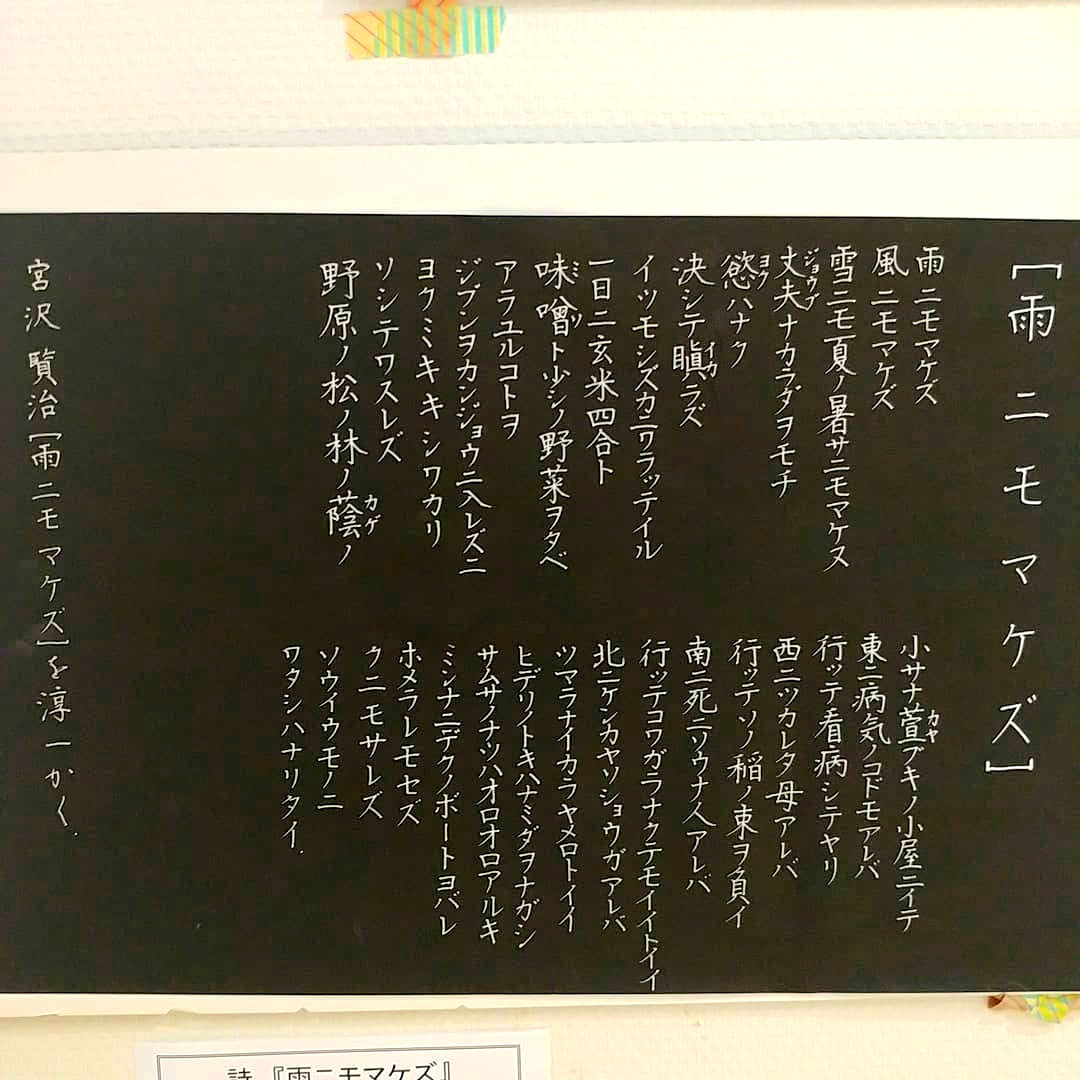 [雨ニモマケズ]
雨ニモマケズ
風ニモマケズ
雪ニモ夏ノ暑サニモマケヌ
丈夫ナカラダヲモチ
慾ハナク
決シテ瞋ラズ
イツモシズカニワラッテイル
一日ニ玄米四合ト
味噌ト少シノ野菜ヲタベ
アラユルコトヲ
ジブンヲカンジョウニ入レズニ
ヨクミキキシワカリ
ソシテワスレズ
野原ノ松ノ林ノ蔭ノ
小サナ萱ブキノ小屋ニイテ
東ニ病気ノコドモアレバ
行ッテ看病シテヤリ
西ニツカレタ母アレバ
行ッテソノ稲ノ束ヲ負イ
南ニ死ニソウナ人アレバ
行ッテコワガラナクテモイイトイイ
北ニケンカヤソショウガアレバ
ツマラナイカラヤメロトイイ
ヒデリノトキハナミダヲナガシ
サムサノナツハオロオロアルキ
ミンナニデクノボートヨバレ
ホメラレモセズ
クニモサレズ
ソウイウモノニ
ワタシハナリタイ.
宮沢賢治[雨ニモマケズ]を淳一かく.
詩『雨ニモマケズ』